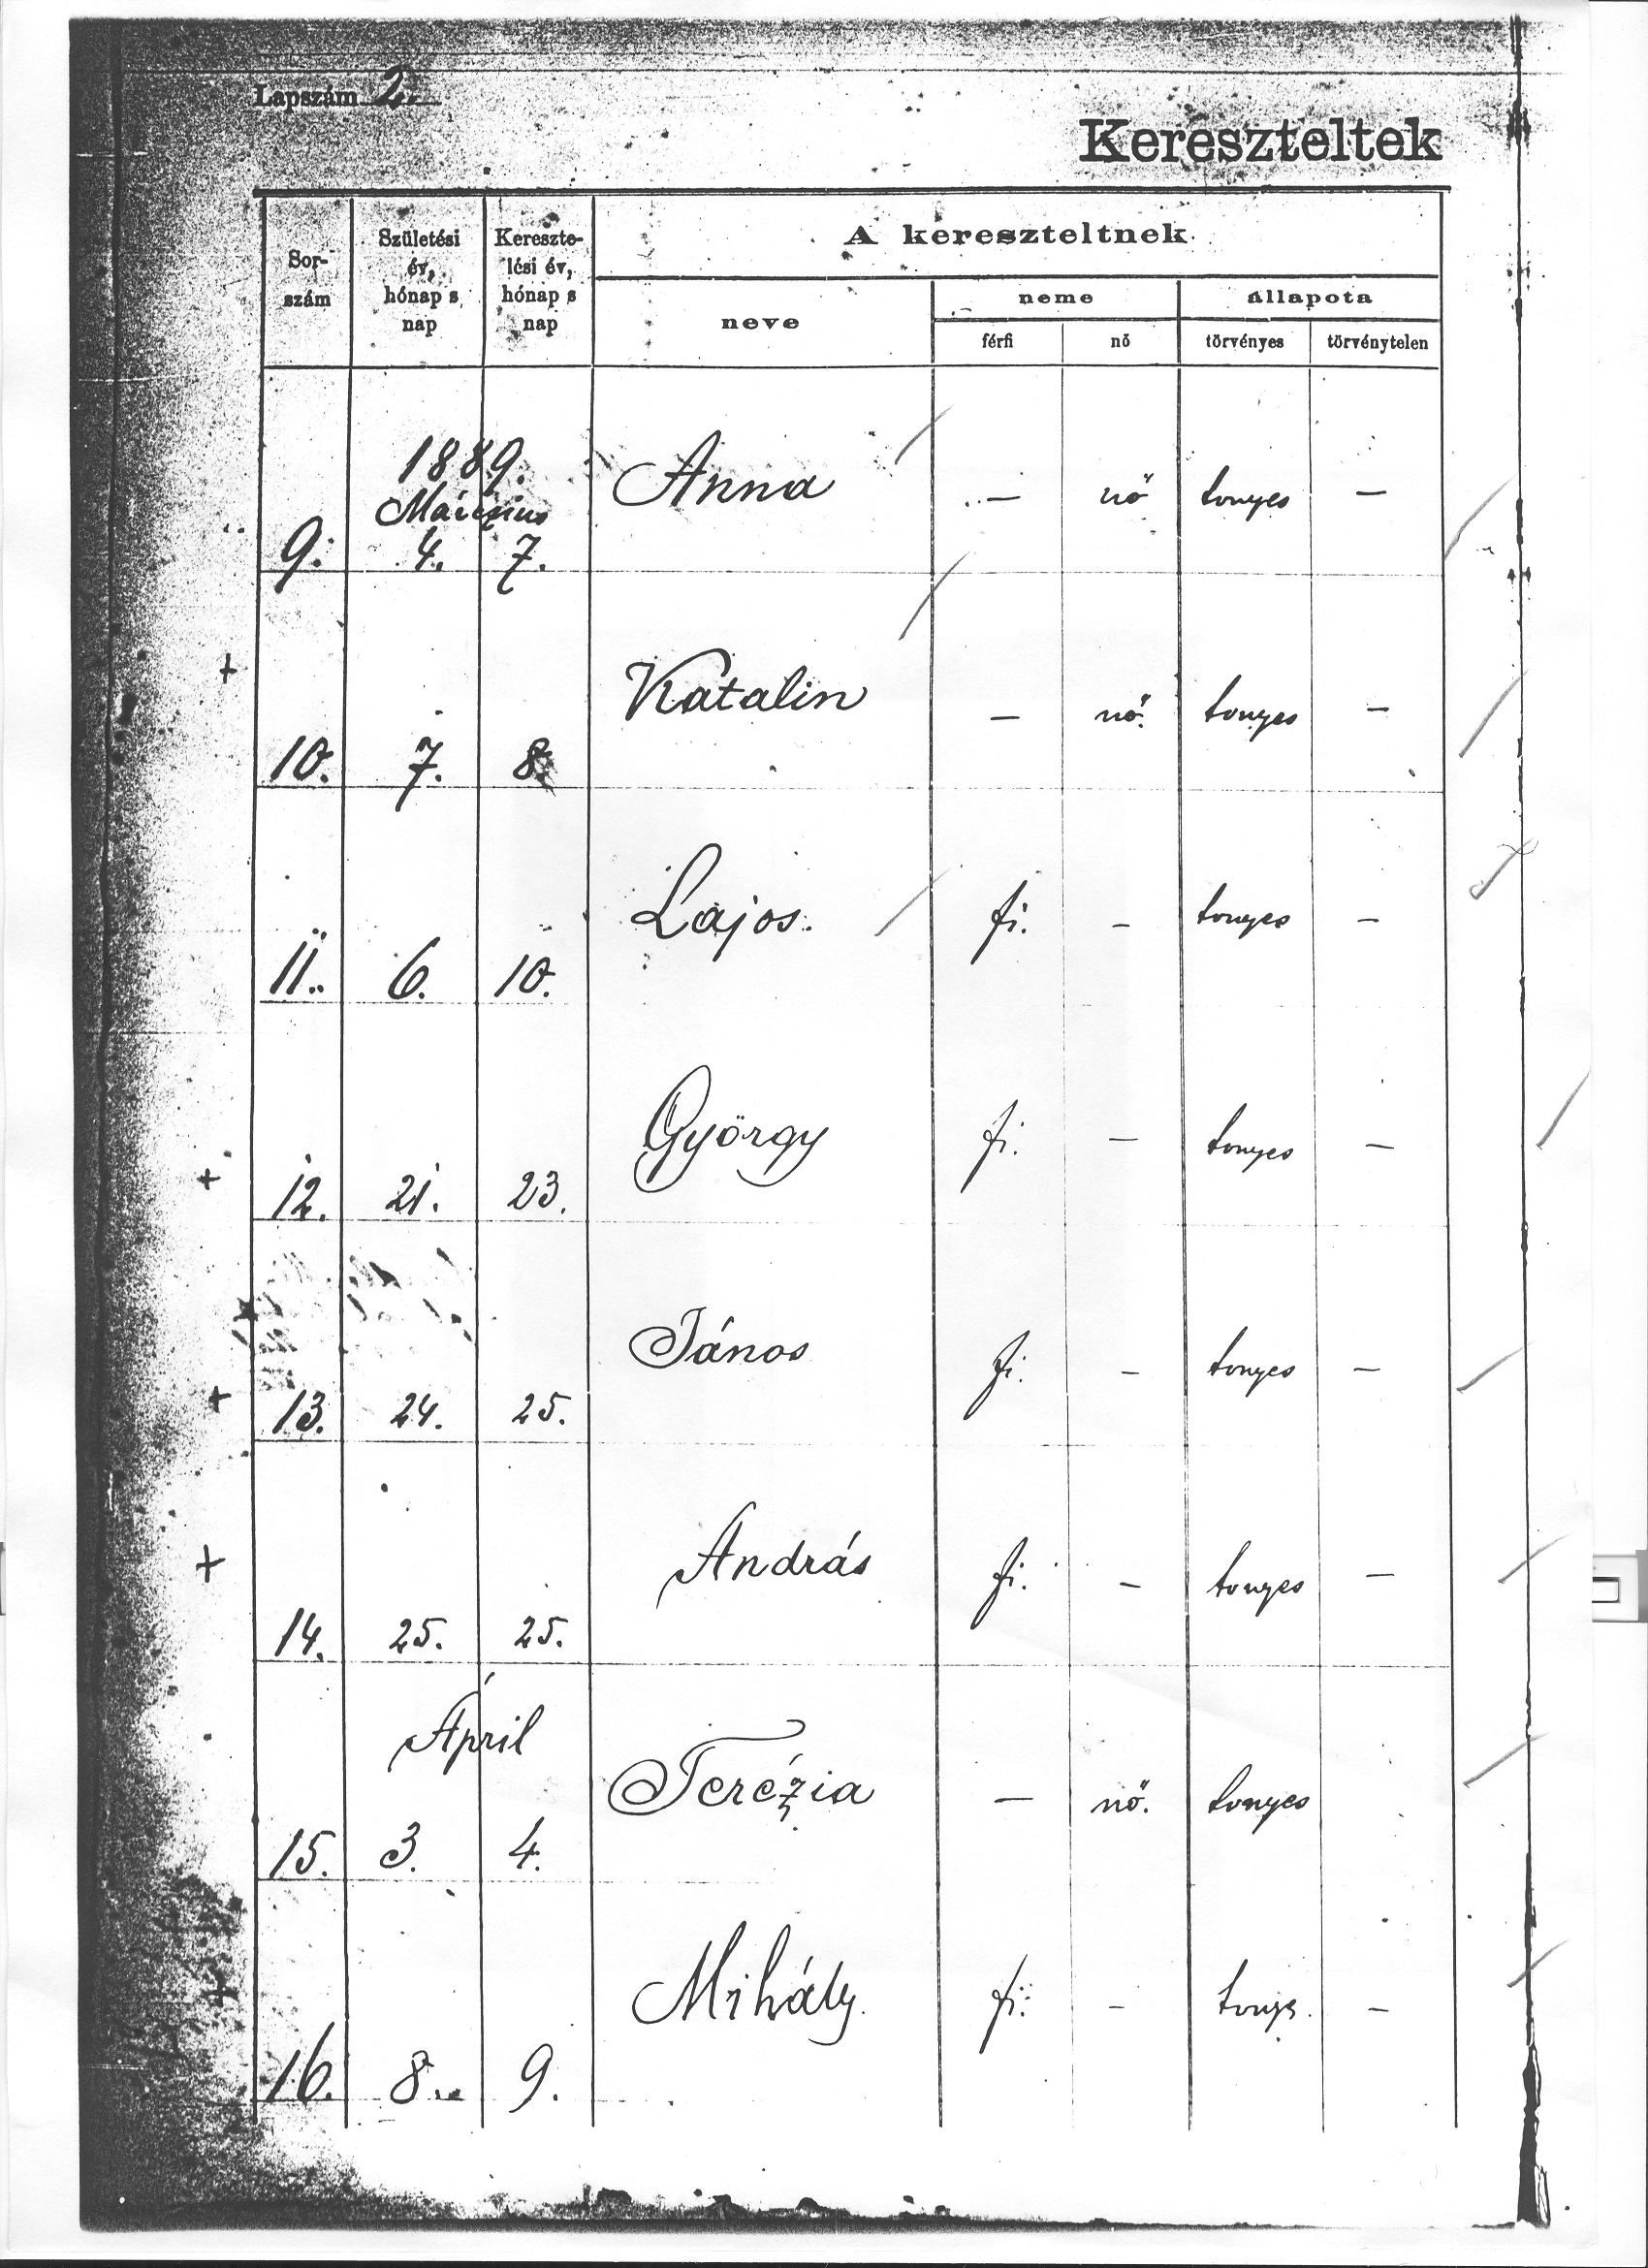 Lapszám 2.
Kereszteltek
Sor-
szám
Születési
év,
hónap s
nap
Kereszte-
lési év,
hónap s
nap
A kereszteltnek
neve
neme
állapota
férfi
nő
törvényes
törvénytelen
1889.
Március
9. 4. 7. Anna — nő tvnyes —
10. 7. 8. Katalin — nő. tvnyes —
11. 6. 10. Lajos. fi. – tvnyes –
12. 21. 23. György fi. — tvnyes —
13. 24. 25. János fi. – tvnyes –
14. 25. 25. András fi. – tvnyes –
Ápril
15. 3. 4. Terézia — nő. tvnyes
16. 8. 9. Mihály. fi. – –